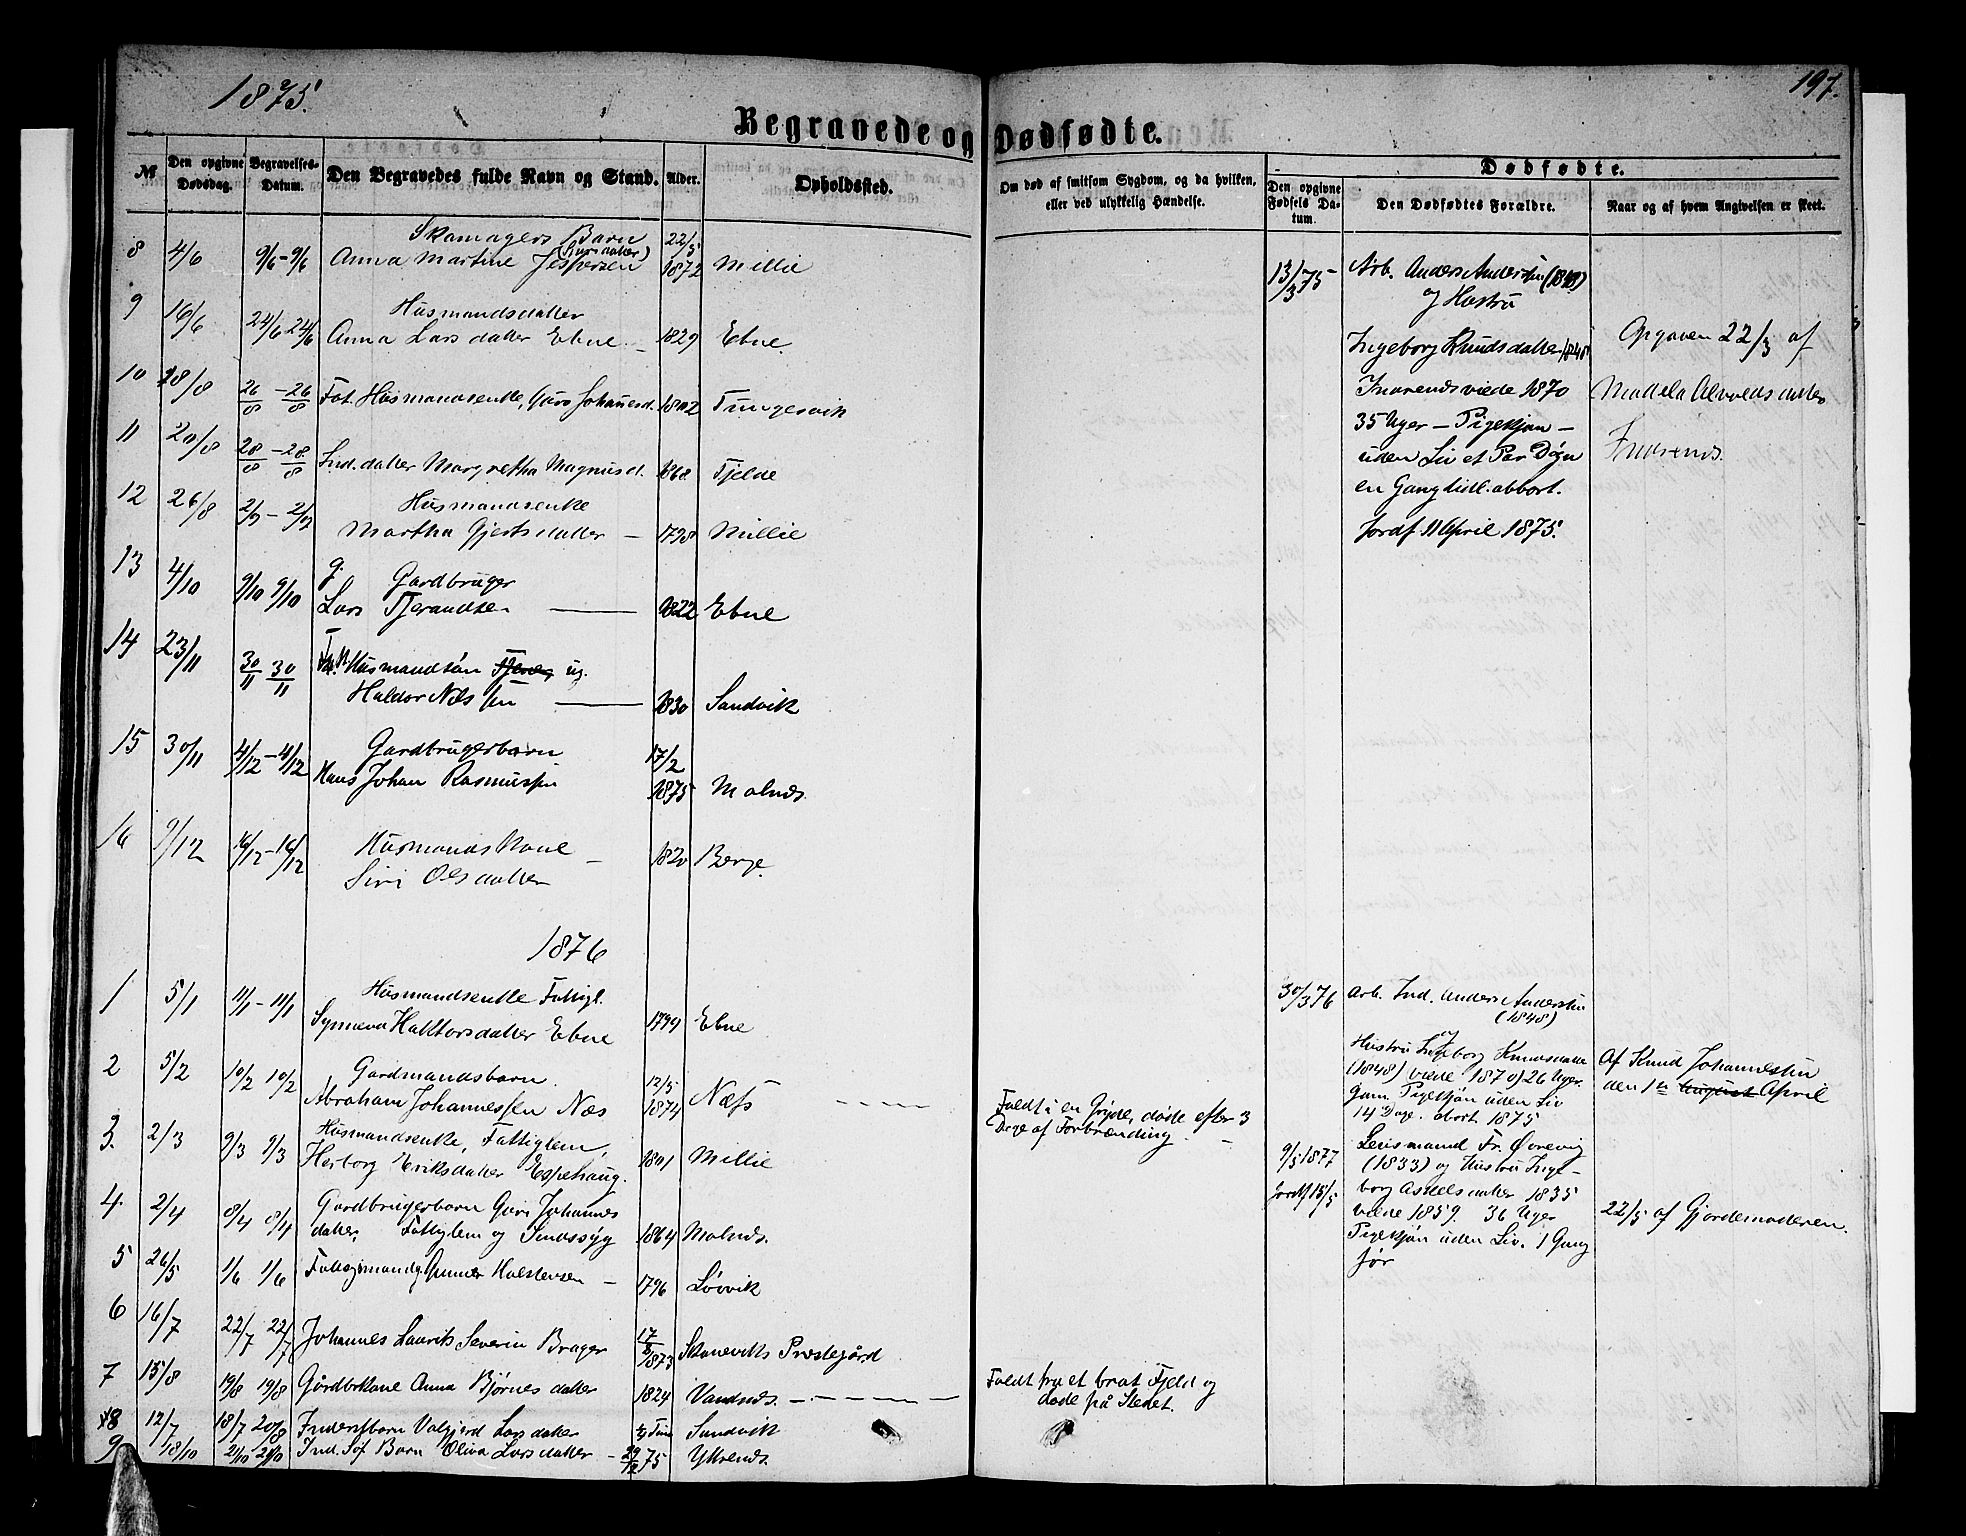 1875.
197.
Begravede og Dødfødte.
No
Den opgivne Dødsdag.
Begravelses-Datum.
Den Begravedes fulde Navn og Stand.
Alder.
Opholdssted.
Om død af smitsom Sygdom, og da hvilken,
eller ved ulykkelig Hændelse.
Dødfødte.
Den opgivne Fødsels Datum.
Den Dødfødtes Forældre.
Naar og af hvem Angivelsen er skeet.
Skomagers Barn 22/5
8 4/6 9/6 - 9/6 Anna Martine Jespersen 1872 Millie
9 16/6 Husmandsdatter
24/6 24/6 Anna Larsdatter Ebne 1829 Ebne.
10 18/8 26/8 - 26/8 Fat. Husmandsenke, Guro Johannesd. 1802 Tungesvik
11 20/8 28/8 - 28/8 Ind. datter Margretha Magnusd. 1868 Fjelde
12 26/8 2/9 - 2/9 Husmandsenke
Martha Gjertsdatter - 1798 Millie
13 4/10 9/10 9/10 g. Gardbruger
Lars Tjerandsen 1822 Ebne
14 23/11 30/11 30/11 Husmandsøn ug.
Haldor Nilssen 1830 Sandvik
15 30/11 4/12 - 4/12 Gardbrugerbarn 17/2
Hans Johan Rasmussen 1875 Molnes.
16 9/12 16/12 - 16/12 Husmandskone
Siri Olsdatter 1820 Berge.
1876
1 5/1 11/1 - 11/1 Husmandsenke Fattigl.
Synneva Haktorsdatter Ebne 1794 Ebne
2 5/2 10/2 10/2 Gardmandsbarn. 12/5
Abraham Johannessen Næs 1874 Næss
3. 2/3 9/3 9/3 Husmandsenke, Fattiglem,
Herborg Eriksdatter Espehaug. 1801 Millie
4. 2/4 8/4 8/4 Gardbrugerbarn Guri Johannes
datter, Fattiglem og Sindssyg 1864 Molnes.
5 26/5 1/6 1/6 Gunner Halstensen - 1796 Løvvik
6 16/7 22/7 22/7 Johannes Laurits Severin Brager 17/8 1873 Skoneviks Prestegård
7 15/8 19/8 19/8 Gårdbrkone Anna Bjørnesdatter 1824 Vandnes.
8 12/7 18/7 20/8 Inderstbarn Valgjerd Larsdatter Sandvik
9 18/10 21/10 21/10 Ind. Søf Barn Oliva Larsdatter - 29/12 75 Yttrenes.
Faldt i en Gryde, døde efter 3
Dage af Forbrænding.
Faldt fra et brat Fjeld og
døde på Stedet.
13/3 75 Arb. Anders Andersen (1848)
og Hustru
Ingeborg Knudsdatter 1848
Indrenes viede 1870
35 Uger - Pigekjøn -
uden Liv et Par Døgn
en Gang tidl. abort.
Jordf. 11 April 1875.
Opgaven 22/3 af
Madela
Indrenes.
30/3 76 Arb. Ind. Anders Andersen
(1848)
og
Hustru Ingeborg Knudsdatter
(1848) viede 1870) 26 Uger
gam. Pigekjøn uden Liv
14 Dage. abort 1875
Af Knud Johannessen
den 1ste August April
9/5 1877 Lensmand Fr. Ørevig
(1833) og Hustru Inge-
Jordf 15/5 borg Askelsdatter 1835
viede 1859. 36 Uger
Pigekjøn uden Liv. 1 Gang
før
22/5 af Gjordemoderen.